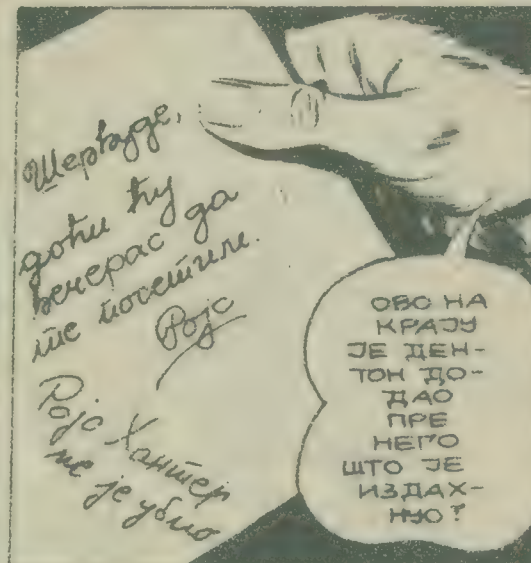 Шервуде,
доћи ћу
вечерас да
те посетим.
Ројс
Ројс Хантер
ме је убио
ОВО НА
КРАЈУ
ЈЕ ДЕН-
ТОН ДО-
ДАО
ПРЕ
НЕГО
ШТО ЈЕ
ИЗДАХ-
НУО?